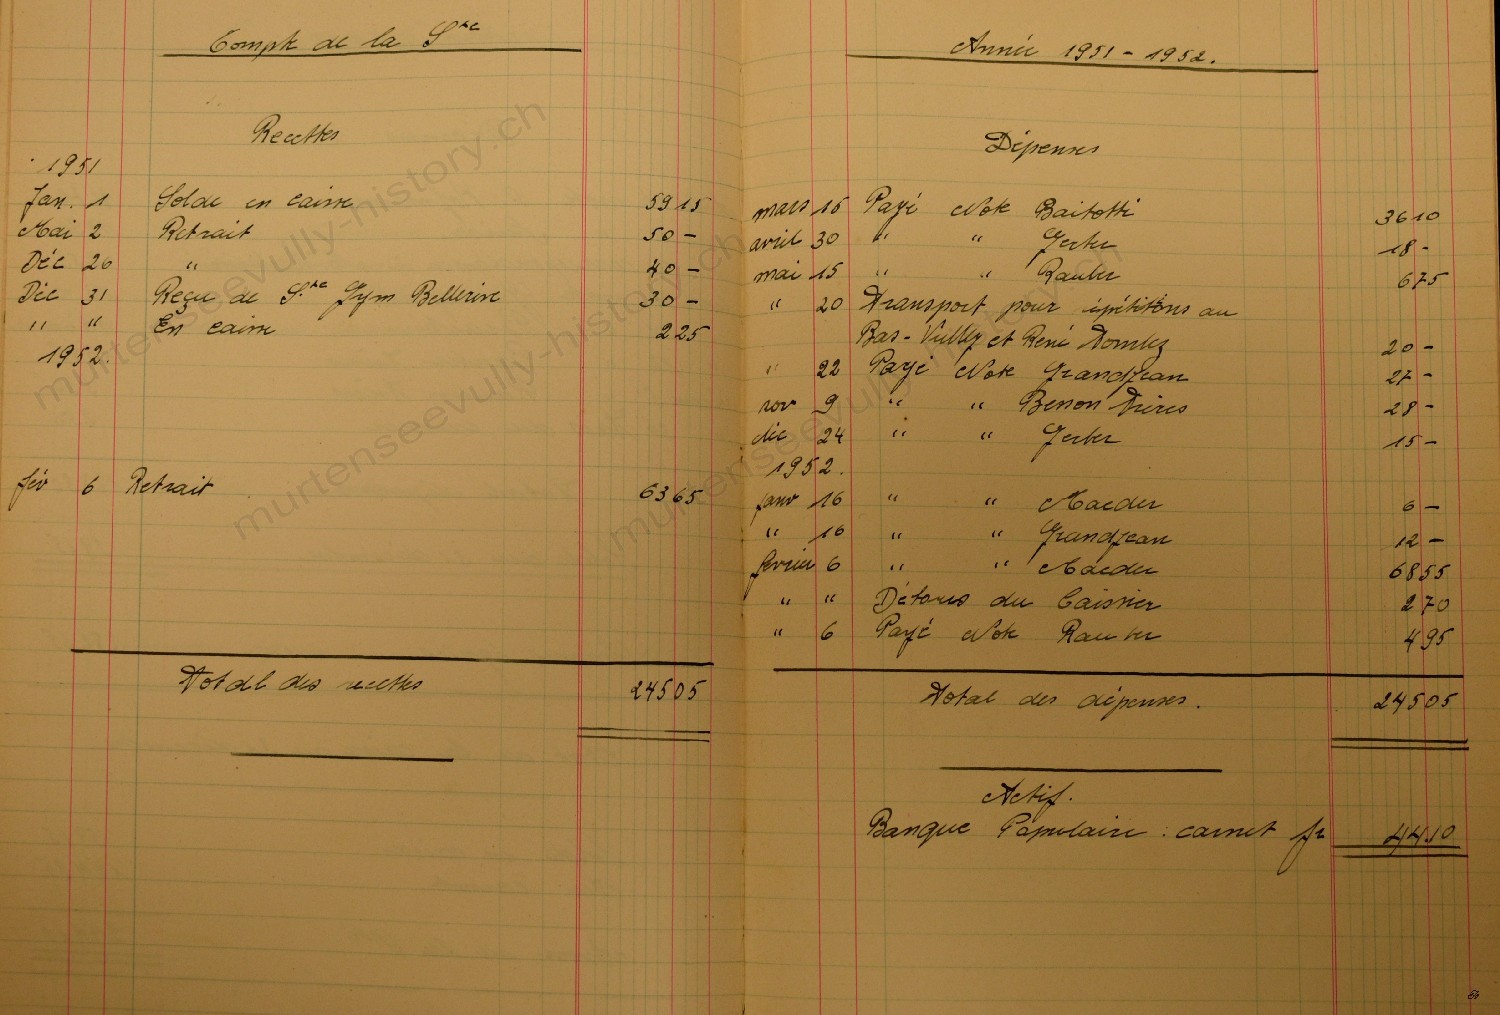 Compte de la Sté
Recettes
1951
Jan. 1 Solde en caisse 59 15
Mai 2 Retrait 50 -
Déc 26 " 40 -
Déc 31 Reçu de Sté Gym Bellerive 30 -
" " En caisse 2 25
1952.
fév 6 Retrait 63 65
Total des recettes 245 05
Année 1951 - 1952.
Dépenses
mars 15 Payé Note 36 10
avril 30 " " Gerber 18 -
mai 15 " " Rauber 6 75
" 20 Transport pour répétitions au
Bas-Vully et René 20 -
" 22 Payé Note Grandjean 27 -
nov 9 " " Benon Frères 28 -
déc 24 " " Gerber 15 -
1952.
janv 16 " " Maeder 6 -
" 16 " " Grandjean 12 -
février 6 " " Maeder 68 55
" " Débours du Caissier 2 70
" 6 Payé Note Rauber 4 95
Total des dépenses. 245 05
Actif.
Banque Populaire : carnet fr 44 10
murtenseevully-history.ch
murtenseevully-history.ch
murtenseevully-history.ch